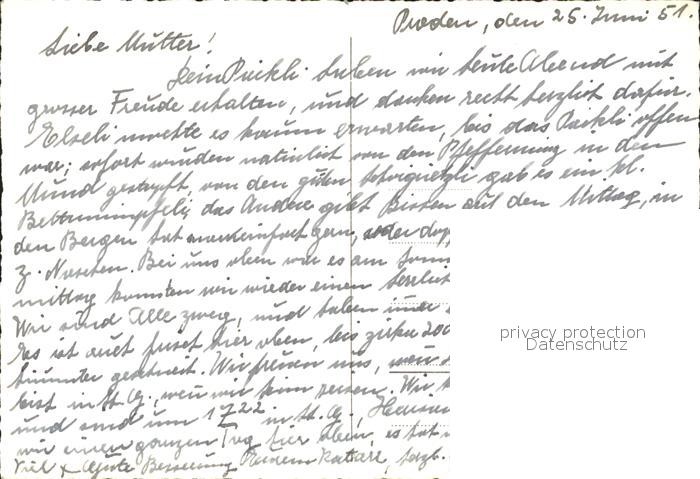 Proden, den 25. Juni 51.
Liebe Mutter!
Dein Päckli haben wir heute Abend mit
grosser Freude erhalten, und danken recht herzlich dafür.
Elseli mochte es kaum erwarten, bis das Päckli offen
war; sofort wurden natürlich von den Pfeffermünz in den
Mund gestopft, von den guten gab es ein kl.
Bettmümpfeli, das Andere gibt Bissen auf den Mittag, in
den Bergen hat man einfach gern, oder
z. Bei uns oben war es am
mittag konnten wir wieder einen herzlich
Wir sind Alle zwäg, und haben
Es ist auch hier oben, bis zirka 200
geschneit. Wir freuen uns, wenn
bist in St. Gg., wenn wir heim reisen. Wir
und sind um 1722 in St. Gg.,
wir einen ganzen Tag hier oben, es hat
viel Gute Besserung Katarr,
privacy protection
Datenschutz